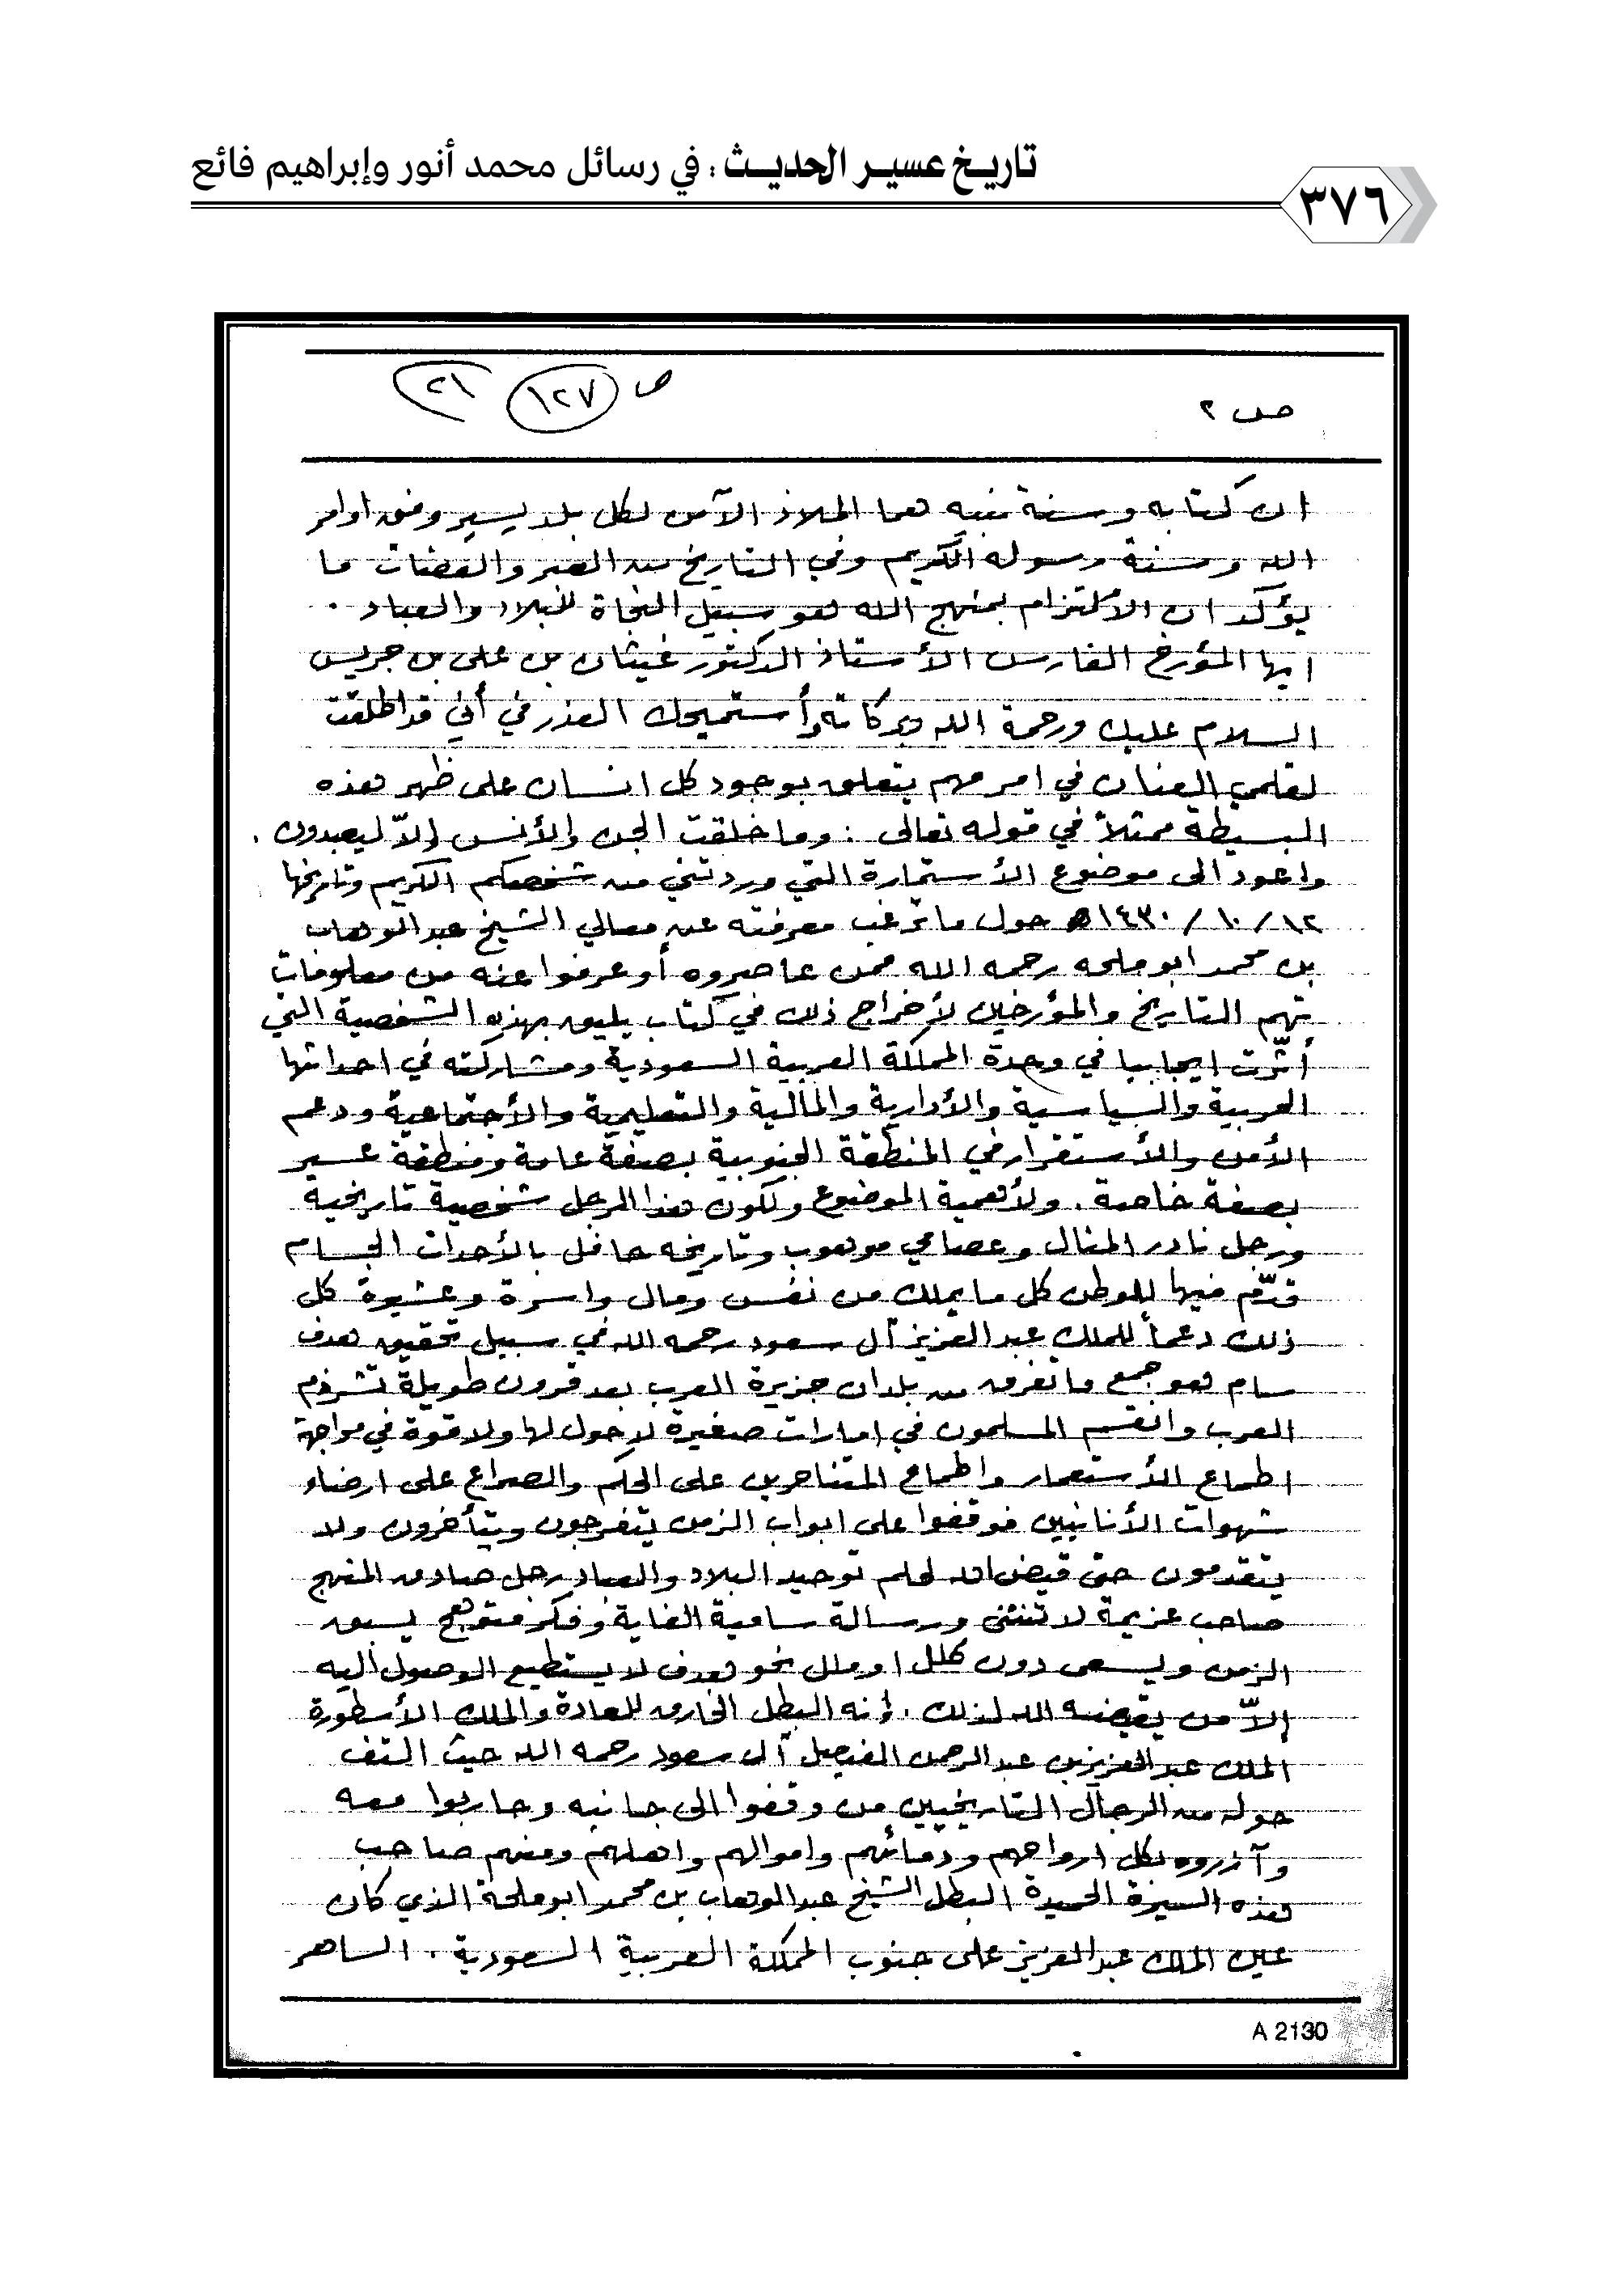 تاريخ عسير الحديث : في رسائل محمد أنور وإبراهيم فائع
٣٧٦
ص ٢
ص ١٢٧
٢١
ان كتابه وسنة نبيه هما الملاذ الآمن لكل بلد يسير وفق اوامر
الله وسنة رسوله الكريم وفي التاريخ من العبر والعضات ما
يؤكد ان الألتزام بمنهج الله لهو سبيل النجاة للبلاد والعباد .
ايها المؤرخ الفارس الأستاذ الدكتور غيثان بن علي بن جريس
السلام عليك ورحمة الله وبركاته وأستميحك العذر في أني قد اطلقت
لقلمي العنان في امر مهم يتعلق بوجود كل انسان على ظهر هذه
البسيطة ممثلاً في قوله تعالى : وما خلقت الجن والأنس إلاّ ليعبدون .
واعود الى موضوع الأستمارة التي وردتني من شخصكم الكريم وتاريخها
١٢/ ١٠/ ١٤٣٠هـ حول ما ترغب معرفته عن معالي الشيخ عبد الوهاب
بن محمد ابو ملحه رحمه الله ممن عاصروه أو عرفوا عنه من معلومات
تهم التاريخ والمؤرخين لأخراج ذلك في كتاب يليق بهذه الشخصية التي
أثّرت إيجابيا في وحدة المملكة العربية السعودية ومشاركته في احداثها
العربية والسياسية والأدارية والمالية والتعليمية والأجتماعية ودعم
الأمن والأستقرار في المنطقة الجنوبية بصفة عامة ومنطقة عسير
بصفة خاصة . ولأهمية الموضوع ولكون هذا الرجل شخصية تاريخيه
ورجل نادر المثال وعصامي موهوب وتاريخه حافل بالأحداث الجسام
قدّم فيها للوطن كل ما يملك من نفس ومال واسرة وعشيرة كل
ذلك دعماً للملك عبد العزيز آل سعود رحمه الله في سبيل تحقيق هدف
سام هو جمع ما تفرق من بلدان جزيرة العرب بعد قرون طويلة تشرذم
العرب وانقسم المسلمون في امارات صغيرة لا حول لها ولا قوة في مواجهة
اطماع الأستعمار واطماع المتناحرين على الحكم والصراع على ارضاء
شهوات الأنانيين فوقفوا على ابواب الزمن يتفرجون ويتأخرون ولا
يتقدمون حتى قيض الله لحلم توحيد البلاد والعباد رجل صادق المنهج
صاحب عزيمة لا تنثني ورسالة سامية الغاية وفكر متوهج يسبق
الزمن ويسعى دون كلل او ملل نحو هدف لا يستطيع الوصول اليه
إلاّ من يقيضه الله لذلك . إنه البطل الخارق للعادة والملك الأسطورة
الملك عبد العزيز بن عبد الرحمن الفيصل آل سعود رحمه الله حيث التف
حوله من الرجال التاريخيين من وقفوا الى جانبه وحاربوا معه
وآزروه بكل ارواحهم ودمائهم واموالهم واهلهم ومنهم صاحب
هذه السيرة الحميدة البطل الشيخ عبد الوهاب بن محمد ابو ملحة الذي كان
عين الملك عبد العزيز على جنوب المملكة العربية السعودية . الساهر
A 2130